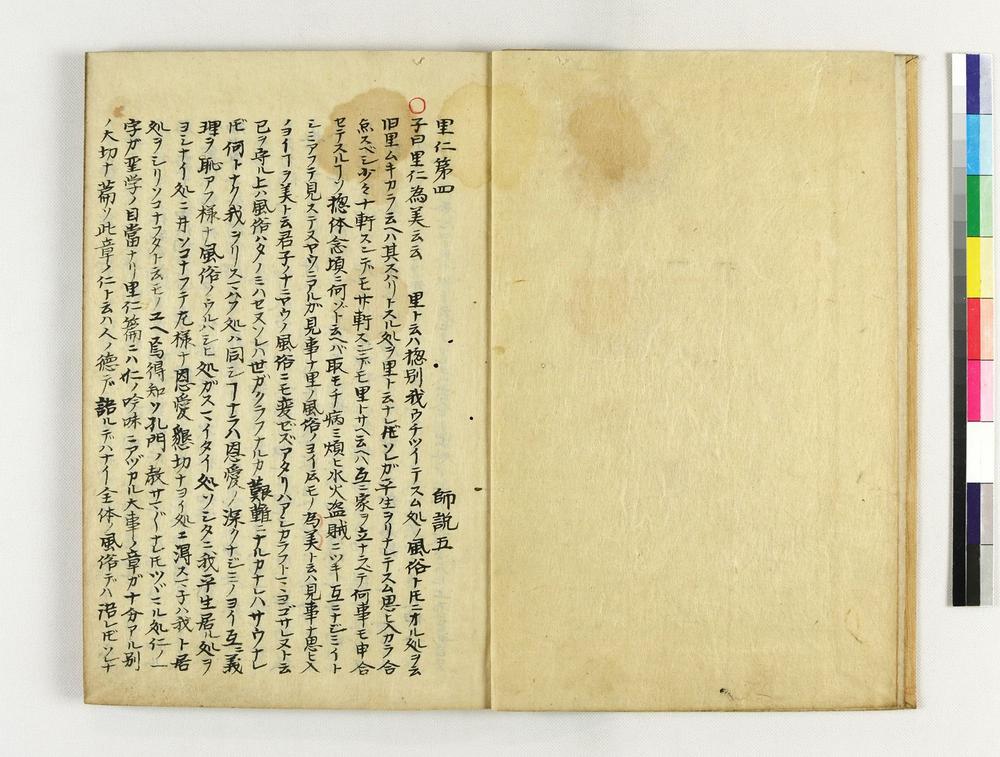 里仁第四　師説五
子曰里仁為美云云　里ト云ハ惣別我ウチツイテスム処ノ風俗トモニオル処ヲ云
旧里ムキカラ云ヘハ其スハリトスル処ヲ里ト云ナレ𪜈ソレガ平生ヲリナレテスム思ヒ入カラ合
点スベシ少々ナ軒スンデモ廿軒スンデモ里トサヘ云ヘハ互ニ家ヲ立ナラヘテ何事モ申合
セテスルソ惣体念頃ニ何ゾト云ヘバ取モチ病ミ煩ヒ水火盗賊ニツキ互ニナジミイト
シミアフテ見ステヌヤウニアルガ見事ナ里ノ風俗ノヨイ云モノ為美ト云ハ見事ナ思ヒ入
ノヨイヿヲ美ト云君子ノナニヤウノ風俗ニモ変ゼズアタリハアシカラフトマヨゴサレヌト云
已ヲ守ル上ハ風俗ハタノミハセヌソレハ世ガクラフナルカ艱難ニナルカナレハサウナレ
𪜈何トナク我ヲリスマフ処ハ同シヿナラハ恩愛ノ深クナジミノヨイ互ニ義
理ヲ恥アフ様ナ風俗ノウルハシヒ処ガスマイタイ処ソシタニ我平生居ル処ヲ
ヨシナイ処ニ井ソコナフテ左様ナ恩愛懇切ナヨイ処ニ得スマ子ハ我ト居
処ヲシリソコナフタト云モノユヘ焉得知ソ孔門ノ教サマ〲ナレ𪜈ツマル処仁ノ一
字ガ聖学ノ目當ナリ里仁篇ニハ仁ノ吟味ニアヅカル大事ノ章ガ十分アル別
ノ大切ナ篇ソ此章ノ仁ト云ハ人ノ徳デ語ルデハナイ全体ノ風俗デハ語レ𪜈ソレナ